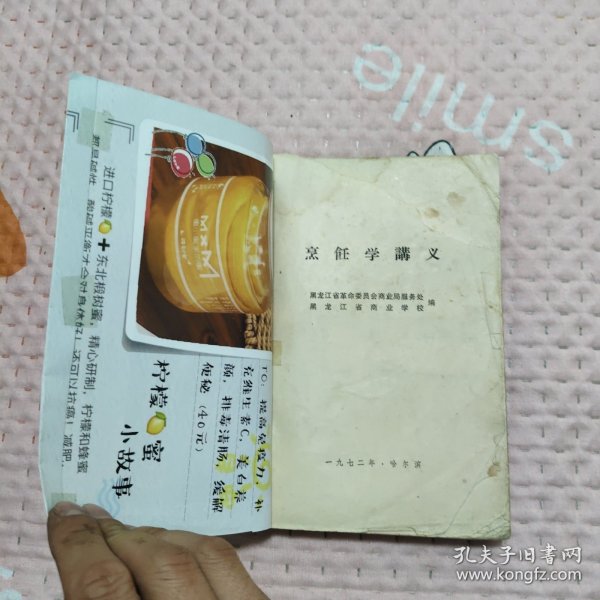 smile
进口柠檬🍋+东北椴树蜜，精心研制，柠檬和蜂蜜
都是碱性，酸碱平衡才会对身体好！还可以抗癌！减肥，
MXM
柠檬🍋蜜
小故事
TO：提高免疫力，补
充维生素C，美白养
颜，排毒清肠，缓解
便秘（40元）
烹饪学講义
黑龙江省革命委员会商业局服务处
黑龙江省商业学校
编
一九七二年·哈尔滨
孔夫子旧书网
www.kongfz.com